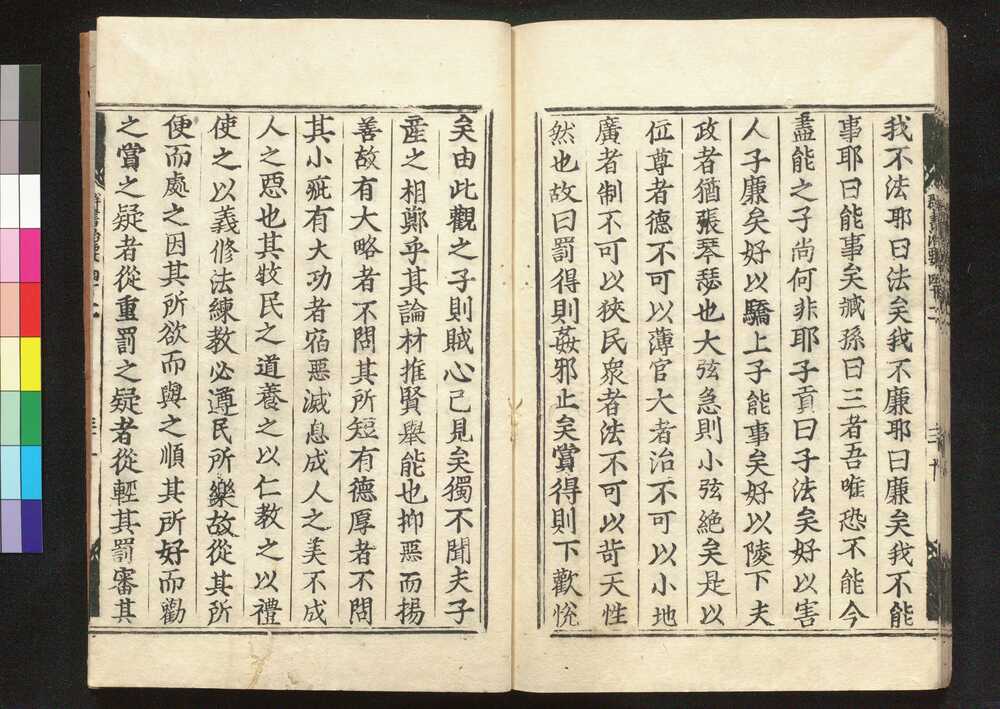 我不法耶曰法矣我不廉耶曰廉矣我不能
事耶曰能事矣臧孫曰三者吾唯恐不能今
盡能之子尚何非耶子貢曰子法矣好以害
人子廉矣好以驕上子能事矣好以陵下夫
政者猶張琴瑟也大弦急則小弦絶矣是以
位尊者德不可以薄官大者治不可以小地
廣者制不可以狹民衆者法不可以苛天性
然也故曰罰得則姦邪止矣賞得則下歡悅
矣由此觀之子則賊心已見矣獨不聞夫子
產之相鄭乎其論材推賢舉能也抑惡而揚
善故有大略者不問其所短有德厚者不問
其小疵有大功者宿惡滅息成人之美不成
人之惡也其牧民之道養之以仁教之以禮
使之以義修法練教必遵民所樂故從其所
便而處之因其所欲而與之順其所好而勸
之賞之疑者從重罰之疑者從輕其罰審其
群書治要四十二